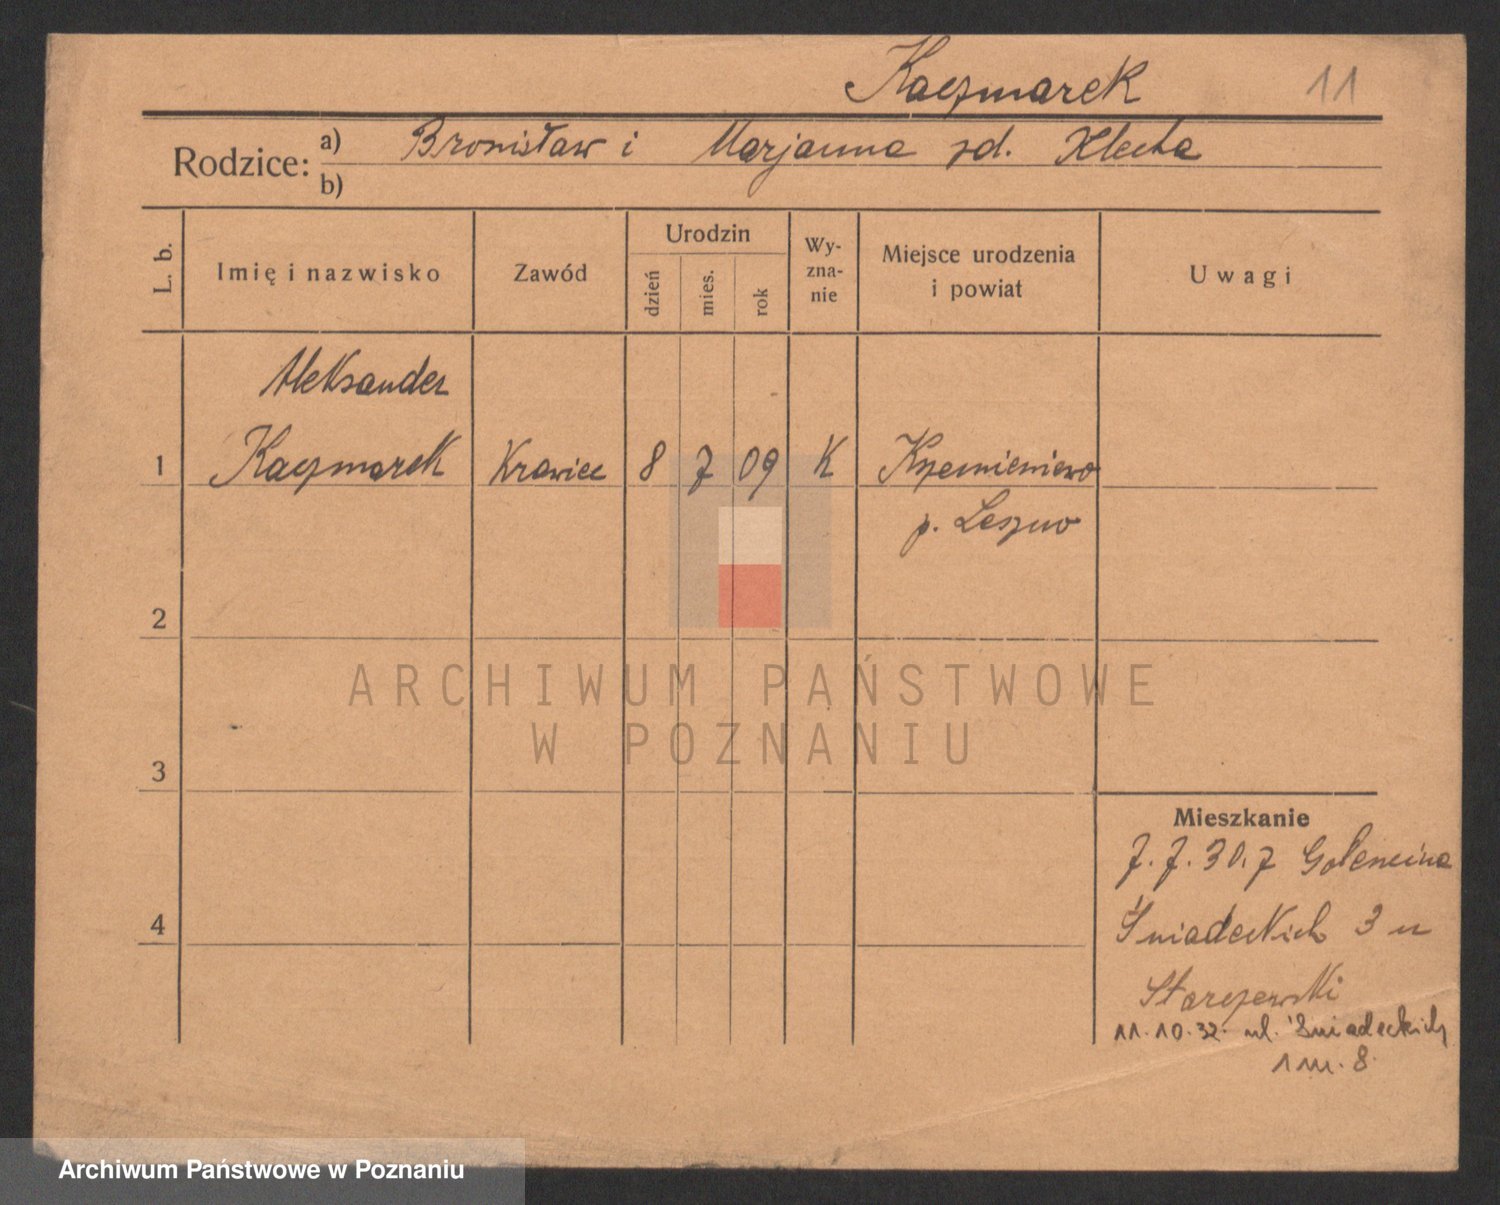 Kaczmarek 11
Rodzice: a) Bronisław i Marjanna zd. Klecha
b)
L. b. Imię i nazwisko Zawód Urodzin dzień mies. rok Wy-zna-nie Miejsce urodzenia i powiat Uwagi
Aleksander
1 Kaczmarek Krawiec 8 7 09 K Krzemieniewo
p. Leszno
2
ARCHIWUM PAŃSTWOWE
W POZNANIU
3
Mieszkanie
7. 7. 30. z Golencina
4 Śniadeckich 3 u
Starczewski
11.10.32. ul. Śniadeckich
1 m. 8.
Archiwum Państwowe w Poznaniu